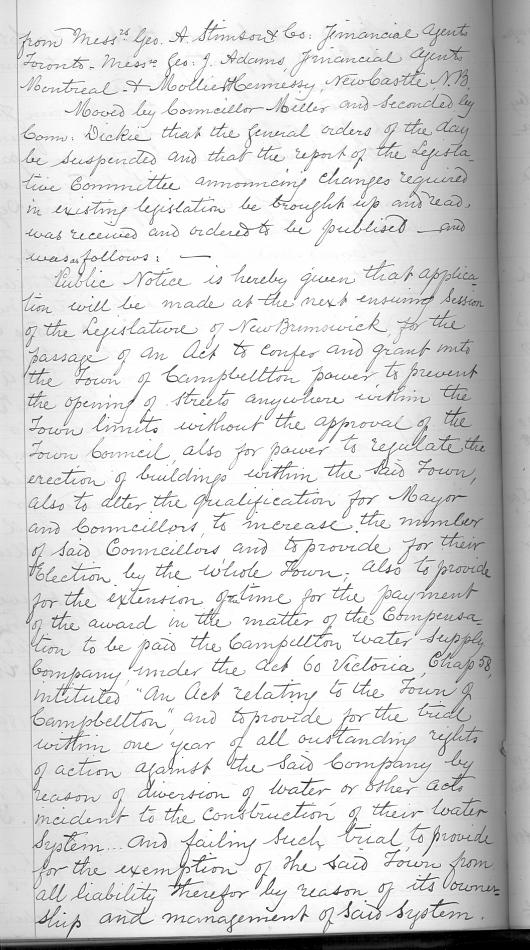 from Messrs Geo. A. Stimson & Co: Financial Agents
Toronto - Messrs Geo: J. Adams, Financial Agents
Montreal - & Mollie & Hennessy, NewCastle N.B.
Moved by Councillor Miller and seconded by
Coun: Dickie that the general orders of the day
be suspended and that the report of the Legisla-
tive Committee announcing changes required
in existing legislation be brought up and read,
was received and ordered to be publised - and
was as follows: -
Public Notice is hereby given that applica-
tion will be made at the next ensuing Session
of the Legislature of New Brunswick, for the
passage of an Act to confer and grant unto
the Town of Campbellton power to prevent
the opening of streets anywhere within the
Town limits without the approval of the
Town Council, also for power to regulate the
erection of buildings within the said Town,
also to alter the qualification for Mayor
and Councillors, to increase the number
of said Councillors and to provide for their
Election by the whole Town; also to provide
for the extension of the time for the payment
of the award in the matter of the Compensa-
tion to be paid the Campellton water supply
Company, under the act 60 Victoria, Chap 58,
intituted "An Act relating to the Town of
Campbellton", and to provide for the trial
within one year of all oustanding rights
of action against the said Company by
reason of diversion of water or other acts
incident to the construction of their water
System... and failing such trial, to provide
for the exemption of the said Town from
all liability therefor by reason of its owner-
ship and management of said System.